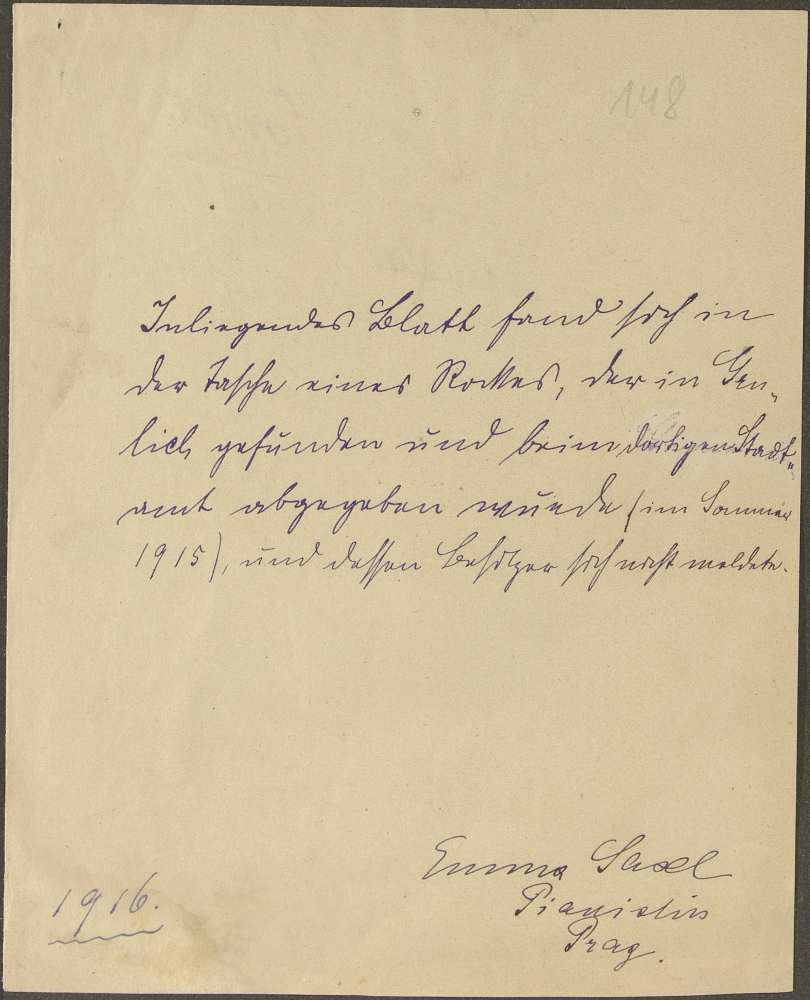 148
Inliegendes Blatt fand sich in
der Tasche eines Rockes, der in Gru-
lich gefunden und beim dortigen Stadt-
amt abgegeben wurde (im Sommer
1915), und dessen Besitzer sich nicht meldete.
Emma Saxl
Pianistin
Prag.
1916.